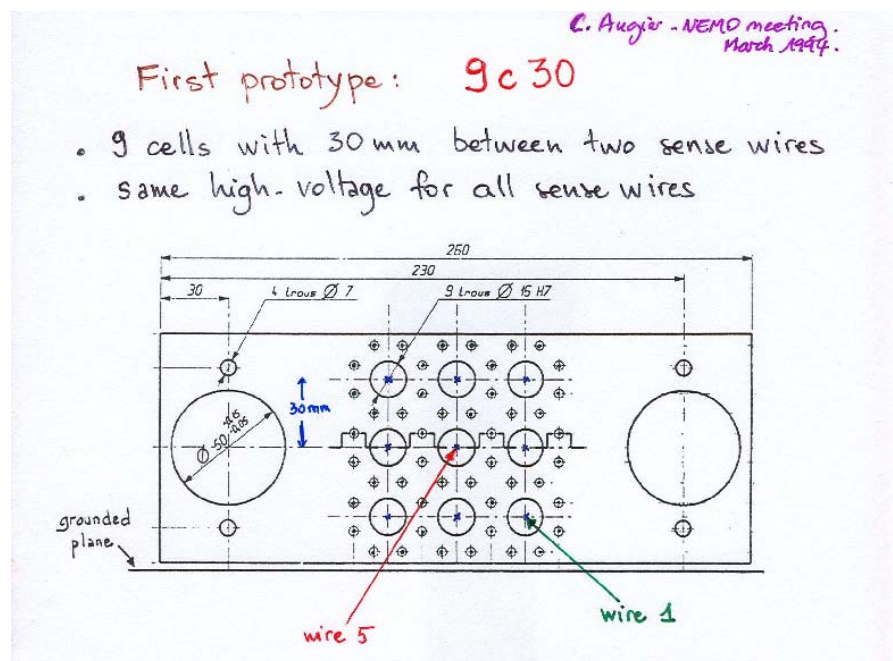 C. Augier - NEMO meeting.
March 1994.
First prototype: 9c30
. 9 cells with 30 mm between two sense wires
. same high-voltage for all sense wires
260
230
30
4 trous Ø 7
9 trous Ø 15 H7
30mm
Ø 50 -0.05
grounded
plane
wire 5
wire 1